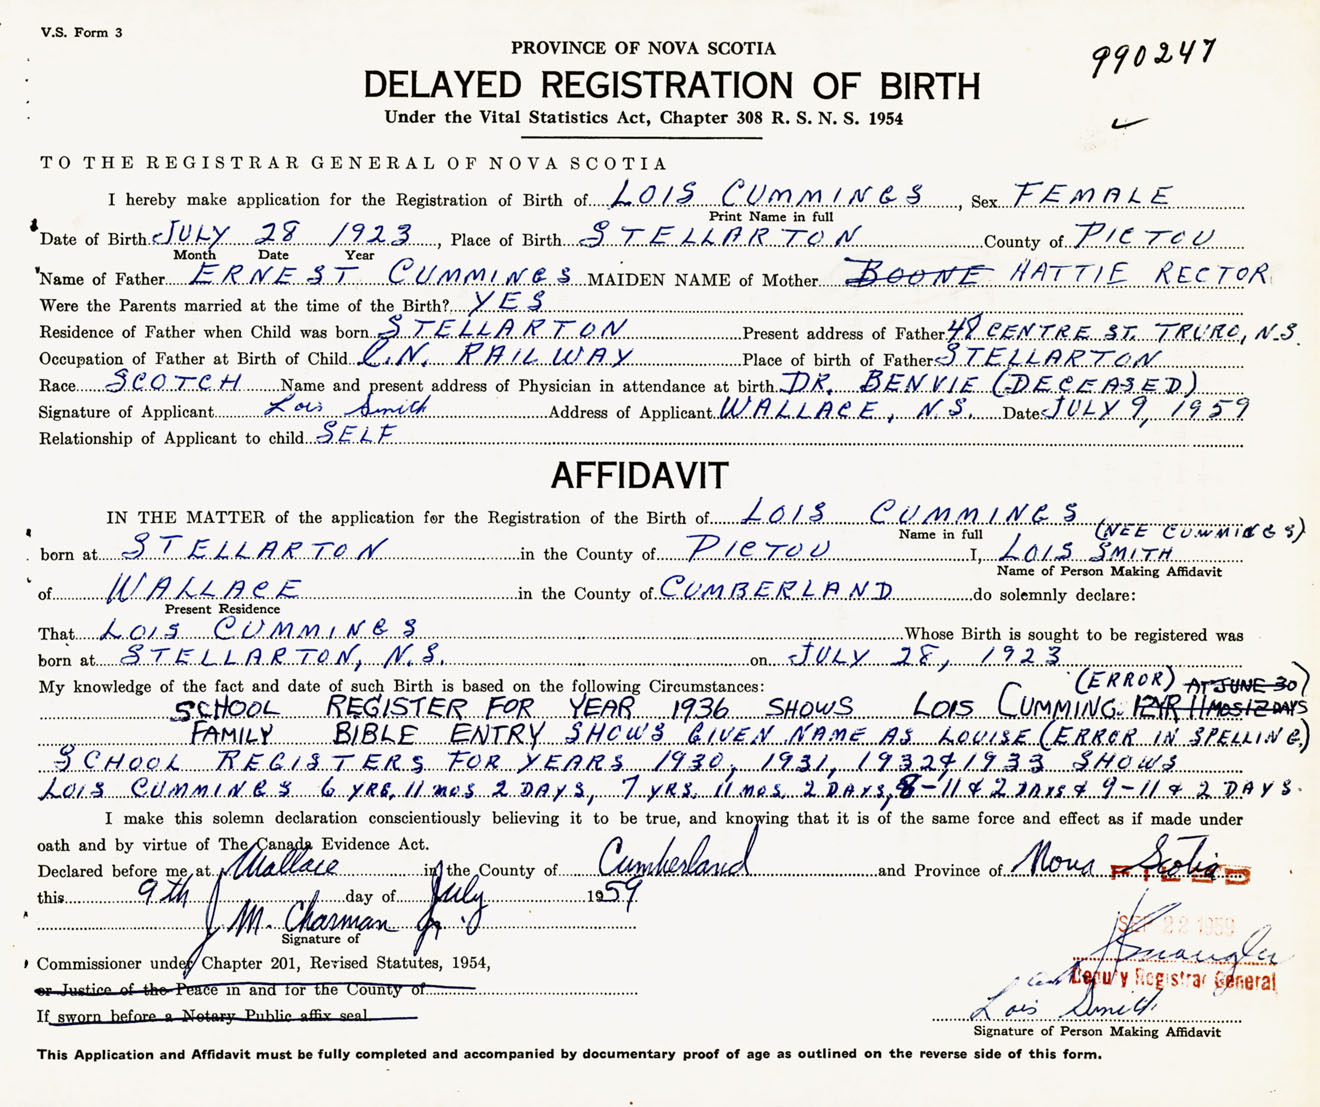 V.S. Form 3
PROVINCE OF NOVA SCOTIA
990247
DELAYED REGISTRATION OF BIRTH
Under the Vital Statistics Act, Chapter 308 R. S. N. S. 1954
TO THE REGISTRAR GENERAL OF NOVA SCOTIA
I hereby make application for the Registration of Birth of LOIS CUMMINGS, Sex FEMALE
Print Name in full
Date of Birth JULY 28 1923, Place of Birth STELLARTON County of PICTOU
Month Date Year
Name of Father ERNEST CUMMINGS MAIDEN NAME of Mother BOONE HATTIE RECTOR
Were the Parents married at the time of the Birth? YES
Residence of Father when Child was born STELLARTON Present address of Father 48 CENTRE ST. TRURO, N.S.
Occupation of Father at Birth of Child C.N. RAILWAY Place of birth of Father STELLARTON
Race SCOTCH Name and present address of Physician in attendance at birth DR. BENVIE (DECEASED)
Signature of Applicant Lois Smith Address of Applicant WALLACE, N.S. Date JULY 9, 1959
Relationship of Applicant to child SELF
AFFIDAVIT
IN THE MATTER of the application for the Registration of the Birth of LOIS CUMMINGS
Name in full (NEE CUMMINGS)
born at STELLARTON in the County of PICTOU I, LOIS SMITH
Name of Person Making Affidavit
of WALLACE in the County of CUMBERLAND do solemnly declare:
Present Residence
That LOIS CUMMINGS Whose Birth is sought to be registered was
born at STELLARTON, N.S. on JULY 28, 1923
My knowledge of the fact and date of such Birth is based on the following Circumstances:
(ERROR) AT JUNE 30)
SCHOOL REGISTER FOR YEAR 1936 SHOWS LOIS CUMMING 12YR 11 MOS 12 DAYS
FAMILY BIBLE ENTRY SHOWS GIVEN NAME AS LOUISE (ERROR IN SPELLING)
SCHOOL REGISTERS FOR YEARS 1930, 1931, 1932 & 1933 SHOWS
LOIS CUMMINGS 6 YRS, 11 MOS 2 DAYS, 7 YRS, 11 MOS, 2 DAYS, 8-11 & 2 DAYS & 9-11 & 2 DAYS.
I make this solemn declaration conscientiously believing it to be true, and knowing that it is of the same force and effect as if made under
oath and by virtue of The Canada Evidence Act.
Declared before me at Wallace in the County of Cumberland and Province of Nova Scotia
FILED
this 9th day of July 1959
SEP 22 1959
J M. Charman Jr.
Signature of
Commissioner under Chapter 201, Revised Statutes, 1954,
Deputy Registrar General
or Justice of the Peace in and for the County of
Lois Smith
If sworn before a Notary Public affix seal
Signature of Person Making Affidavit
This Application and Affidavit must be fully completed and accompanied by documentary proof of age as outlined on the reverse side of this form.